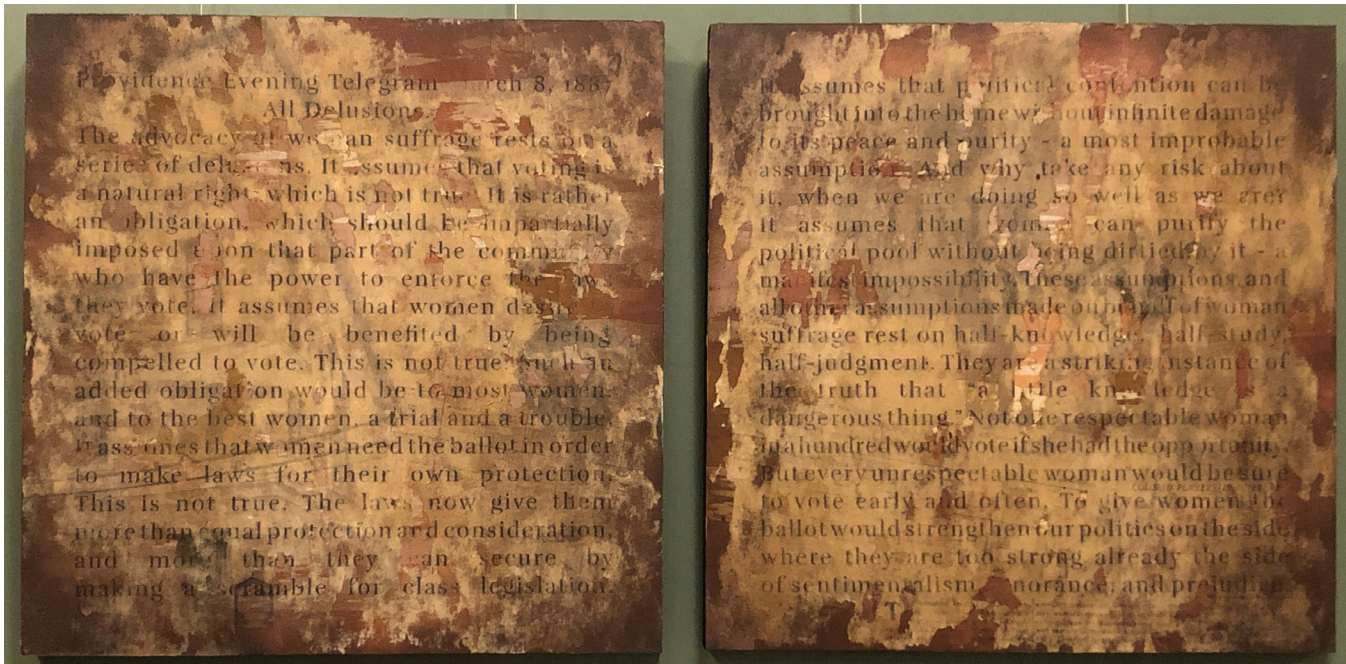 Providence Evening Telegram March 8, 1887
All Delusions.
The advocacy of woman suffrage rests on a
series of delusions. It assumes that voting is
a natural right which is not true. It is rather
an obligation, which should be impartially
imposed upon that part of the community
who have the power to enforce the laws
they vote. It assumes that women desire to
vote or will be benefited by being
compelled to vote. This is not true. Such an
added obligation would be to most women,
and to the best women, a trial and a trouble.
It assumes that women need the ballot in order
to make laws for their own protection.
This is not true. The laws now give them
more than equal protection and consideration,
and more than they can secure by
making a scramble for class legislation.
It assumes that political contention can be
brought into the home without infinite damage
to its peace and purity - a most improbable
assumption. And why take any risk about
it, when we are doing so well as we are?
It assumes that women can purify the
political pool without being dirtied by it - a
manifest impossibility. These assumptions and
all other assumptions made on behalf of woman
suffrage rest on half-knowledge, half-study,
half-judgment. They are a striking instance of
the truth that "a little knowledge is a
dangerous thing." Not one respectable woman
in a hundred would vote if she had the opportunity.
But every unrespectable woman would be sure
to vote early and often. To give women the
ballot would strengthen our politics on the side
where they are too strong already the side
of sentimentalism, ignorance, and prejudice.